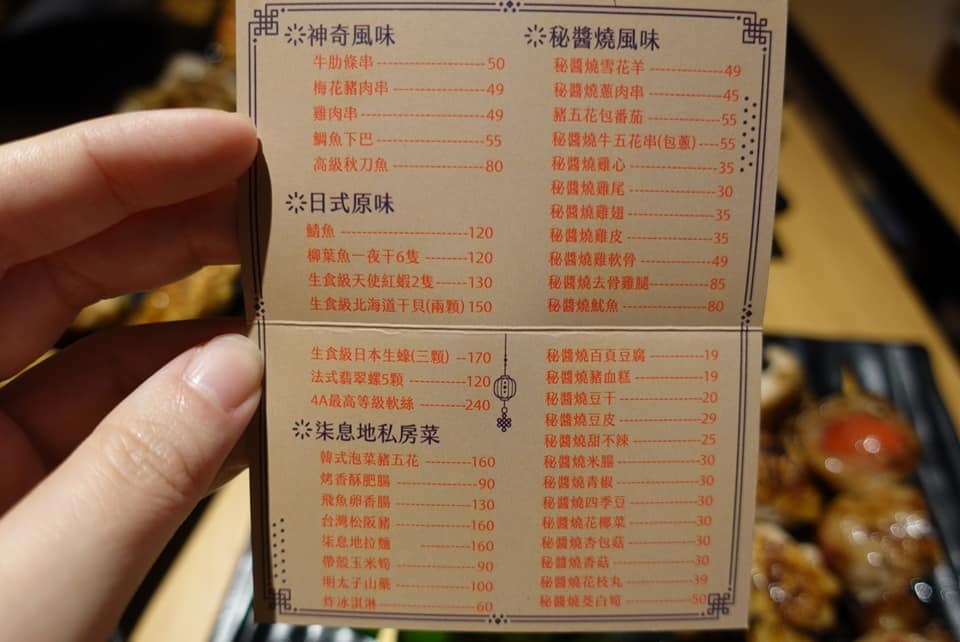 神奇風味
牛肋條串 50
梅花豬肉串 49
雞肉串 49
鯛魚下巴 55
高級秋刀魚 80
日式原味
鯖魚 120
柳葉魚一夜干6隻 120
生食級天使紅蝦2隻 130
生食級北海道干貝(兩顆) 150
生食級日本生蠔(三顆) 170
法式翡翠螺5顆 120
4A最高等級軟絲 240
柒息地私房菜
韓式泡菜豬五花 160
烤香酥肥腸 90
飛魚卵香腸 130
台灣松阪豬 160
柒息地拉麵 160
帶殼玉米筍 90
明太子山藥 100
炸冰淇淋 60
秘醬燒風味
秘醬燒雪花羊 49
秘醬燒蔥肉串 45
豬五花包番茄 55
秘醬燒牛五花串(包蔥) 55
秘醬燒雞心 35
秘醬燒雞尾 30
秘醬燒雞翅 35
秘醬燒雞皮 35
秘醬燒雞軟骨 49
秘醬燒去骨雞腿 85
秘醬燒魷魚 80
秘醬燒百頁豆腐 19
秘醬燒豬血糕 19
秘醬燒豆干 20
秘醬燒豆皮 29
秘醬燒甜不辣 25
秘醬燒米腸 30
秘醬燒青椒 30
秘醬燒四季豆 30
秘醬燒花椰菜 30
秘醬燒杏包菇 30
秘醬燒香菇 30
秘醬燒花枝丸 39
秘醬燒茭白筍 50